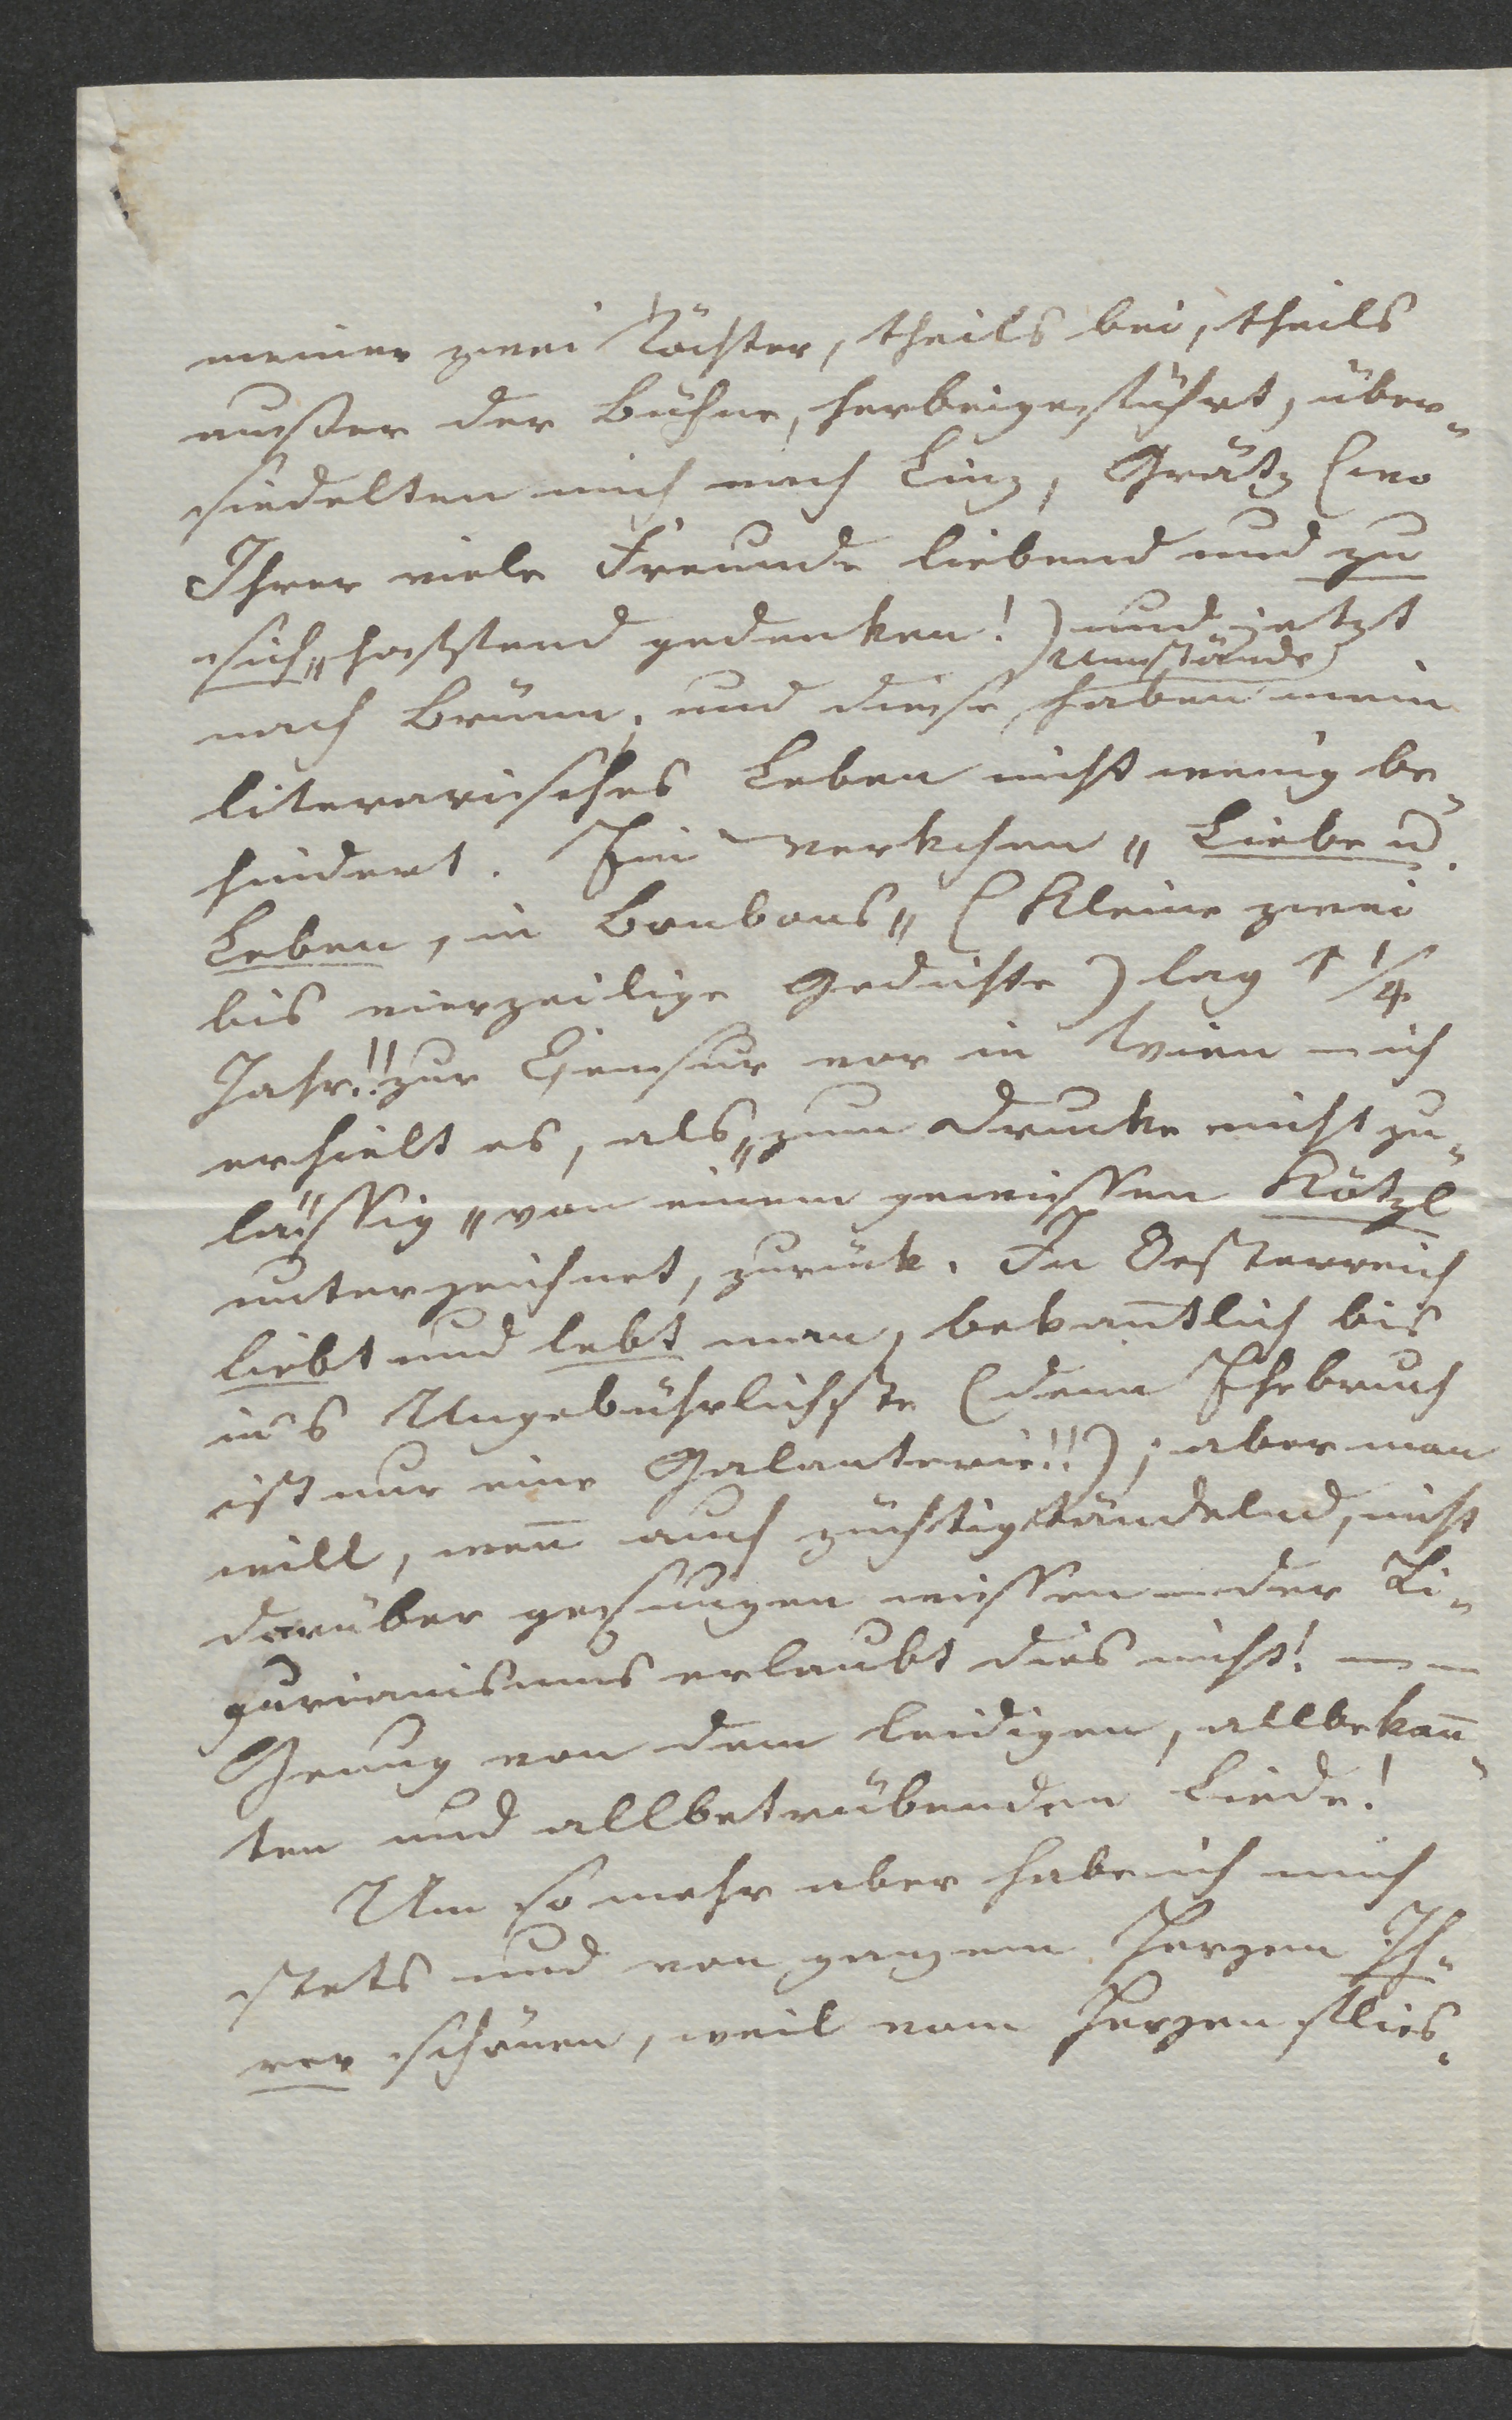 meiner zwei Töchter, theils bei, theils
außer der Bühne, herbeigeführt, über-
siedelten mich nach Linz, Grätz (wo
Ihrer viele Freunde liebend und zu
sich„ hoffend gedenken!) und jetzt
Umstände
nach Brünn, und diese haben mein
literarisches Leben nicht wenig be-
hindert. Ein Werkchen „Liebe u.
Leben, in Bonbons„ (Kleine zwei
bis vierzeilige Gedichte) lag 1 1/4
Jahr!! zur Censur vor in Wien – ich
erhielt es, als „zum Drucke nicht zu-
lässig„ von einem gewissen Kötzl
unterzeichnet, zurück. In Oesterreich
liebt und lebt man, bekan̄tlich bis
in's Ungebührlichste (denn Ehebruch
ist nur eine Galanterie!!); aber man
will, wen̄ auch züchtig tändelnd, nicht
darüber gesungen wissen – der Li-
gurianismus erlaubt dies nicht! – –
Genug von dem leidigen, allbekan̄-
ten und allbetrübenden Liede!
Um so mehr aber habe ich mich
stets und von ganzem Herzen Ih-
rer schönen, weil vom Herzen flies-